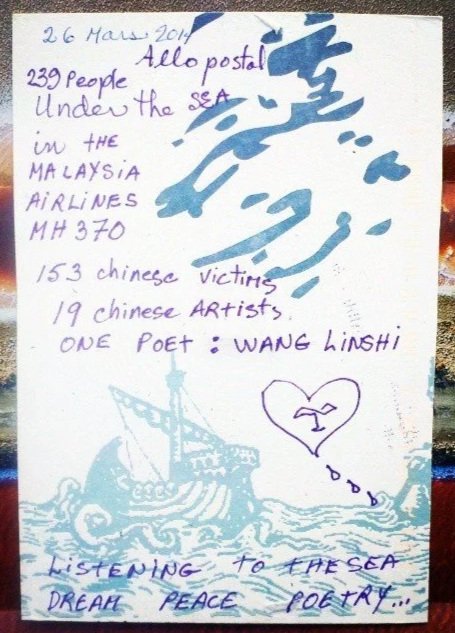 26 Mars 2014
Allo postal
239 People
Under the SEA
in THE
MALAYSIA
AIRLINES
MH 370
153 chinese victims
19 chinese ARTISTS.
ONE POET : WANG LINSHI
LISTENING to THE SEA
DREAM PEACE POETRY...